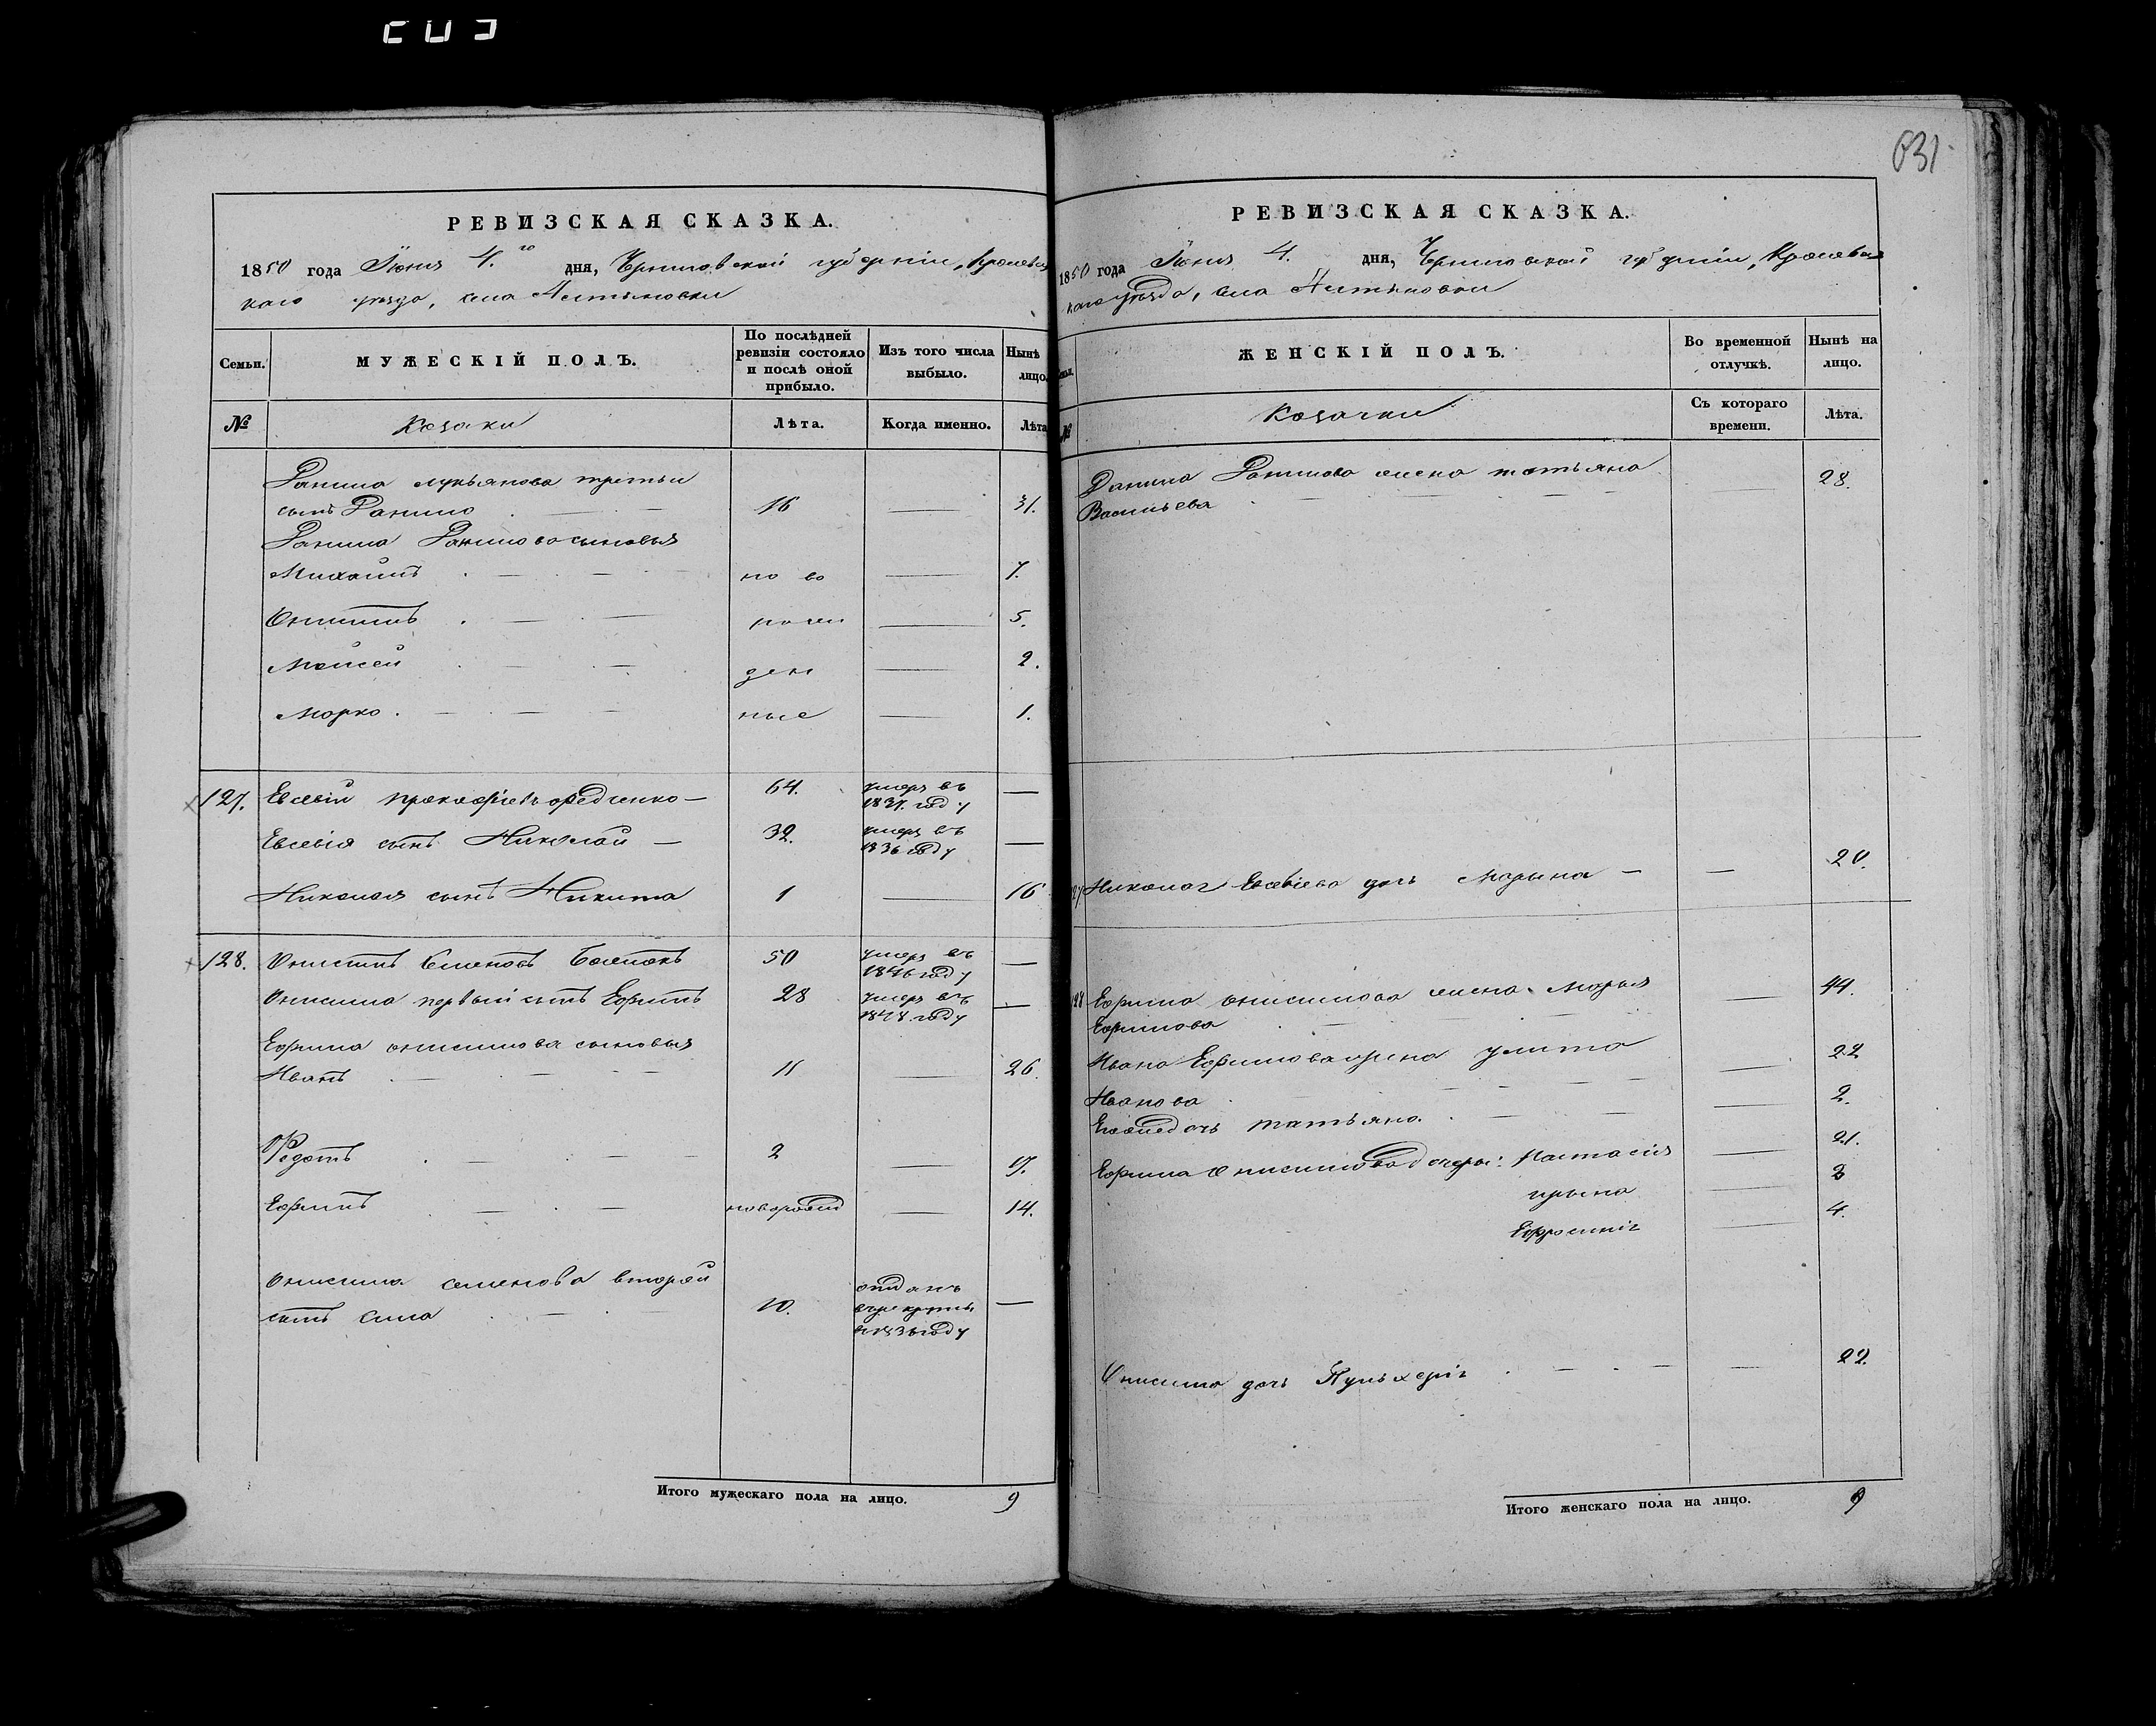 631
РЕВИЗСКАЯ СКАЗКА.
1850 года Іюня 4.го дня, Черниговской губерніи, Кролевец
каго уезда, села Алтыновки
Семьи.
МУЖЕСКІЙ ПОЛЪ.
По послѣдней
ревизіи состояло
и послѣ оной
прибыло.
Изъ того числа
выбыло.
Нынѣ
лицо.
№
Козаки
Лѣта.
Когда именно.
Лѣта
Данила Лукьянова третьи
сынъ Данило 16 — 31.
Данила Данилова сыновья
Михаилъ но во — 7.
Онисимъ рож — 5.
Мойсей ден — 2.
Марко ные — 1.
127. Евсевій Прокофіевъ Федченко — 64. умеръ въ
1837. году —
Евсевія сынъ Николай — 32. умеръ въ
1836 году —
Николая сынъ Никита 1 — 16
128. Онисимъ Семеновъ 50 умеръ въ
1846 году —
Онисима первый сынъ Ефимъ 28 умеръ въ
1848. году —
Ефима Онисимова сыновья
Иванъ 11 — 26.
Федотъ 2 — 17.
Ефимъ новорожд — 14.
Онисима Семенова второй
сынъ Сила 10. отданъ
в рекруты
в 1836 году —
Итого мужескаго пола на лицо. 9
РЕВИЗСКАЯ СКАЗКА.
1850 года Іюня 4. дня, Черниговской губерніи, Кролевец
каго уезда, села Алтыновки
ЖЕНСКІЙ ПОЛЪ.
Во временной
отлучкѣ.
Нынѣ на
лицо.
№
Козачки
Съ котораго
времени.
Лѣта.
Данила Данилова жена Татьяна — 28.
Васильева
127 Николая Евсевіева дочь Марына — — 20.
128 Ефима Онисимова жена Марья — 44.
Ефимова
Ивана Ефимова жена Улита — 22
Иванова
Егоже дочь Татьяна — 2.
Ефима Онисимова дочери: Настасія — 21.
Ирына — 8
Ефросинія — 4.
Онисима дочь Пульхерія — 22.
Итого женскаго пола на лицо. 9